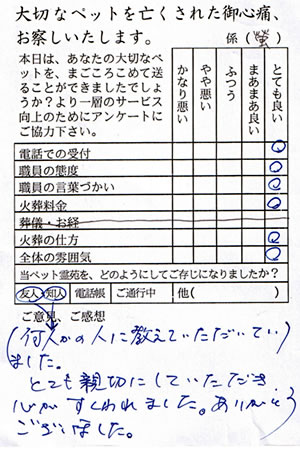 大切なペットを亡くされた御心痛、
お察しいたします。
係( )
本日は、あなたの大切なペットを、まごころこめて送ることができましたでしょうか?より一層のサービス向上のためにアンケートにご協力下さい。
かなり悪い
やや悪い
ふつう
まあまあ良い
とても良い
電話での受付
職員の態度
職員の言葉づかい
火葬料金
葬儀・お経
火葬の仕方
全体の雰囲気
当ペット霊苑を、どのようにしてご存じになりましたか?
友人 知人 電話帳 ご通行中 他(
ご意見、ご感想
(何人かの人に教えていただいてい)
ました。
とても親切にしていただき
心がすくわれました。ありがとう
ございました。